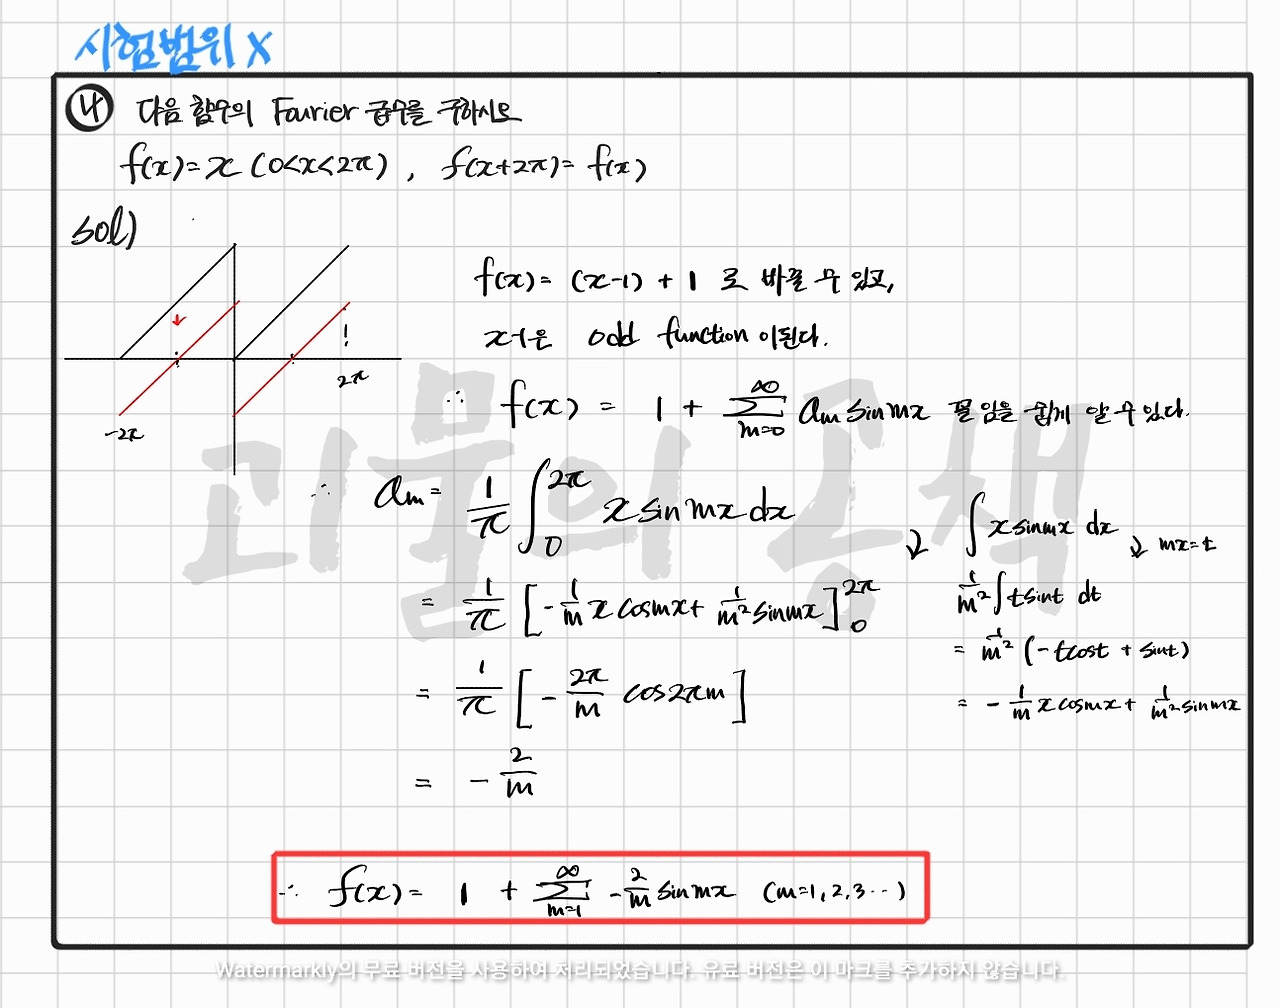 시험범위 X
4 다음 함수의 Fourier 급수를 구하시오
f(x)=x (0<x<2π), f(x+2π)=f(x)
sol)
f(x)= (x-1) + 1 로 바꿀 수 있고,
x-1은 odd function이 된다.
2π
-2π
∴ f(x) = 1 + ∑_{m=0}^{∞} a_m sin mx 꼴 임을 쉽게 알 수 있다.
∴ a_m = 1/π ∫_0^{2π} x sin mx dx
= 1/π [ -1/m x cos mx + 1/m² sin mx ]_0^{2π}
= 1/π [ -2π/m cos 2πm ]
= -2/m
↓ ∫ x sin mx dx ↓ mx=t
1/m² ∫ t sin t dt
= 1/m² (-t cos t + sin t)
= -1/m x cos mx + 1/m² sin mx
∴ f(x) = 1 + ∑_{m=1}^{∞} -2/m sin mx (m=1, 2, 3 ···)
괴물의 공책
Watermarkly의 무료 버전을 사용하여 처리되었습니다. 유료 버전은 이 마크를 추가하지 않습니다.